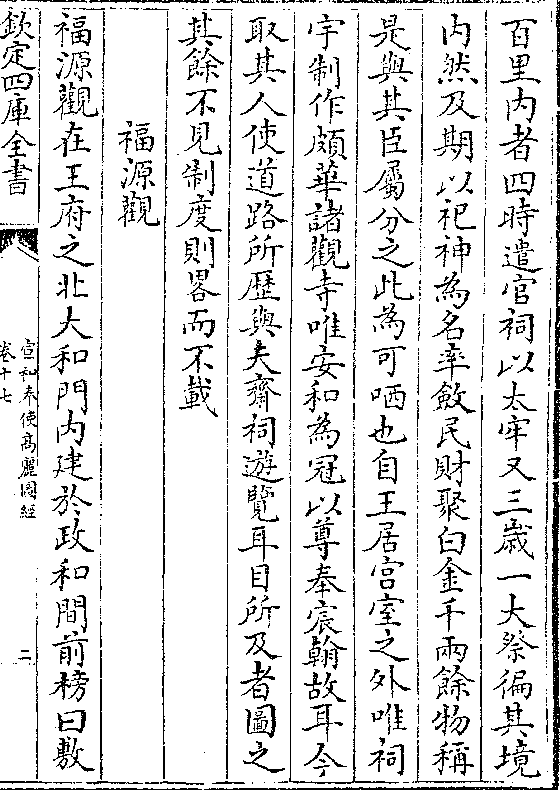 百里内者四時遣官祠以太牢又三歳一大祭徧其境
内然及期以祀神為名率斂民財聚白金千兩餘物稱
是與其臣屬分之此為可哂也自王居宫室之外唯祠
宇制作頗華諸觀寺唯安和為冠以尊奉宸翰故耳今
取其人使道路所歴與夫齋祠遊覽耳目所及者圖之
其餘不見制度則畧而不載
福源觀
福源觀在王府之北大和門内建於政和間前榜曰敷
欽定四庫全書
宣和奉使髙麗圖經
卷十七
二